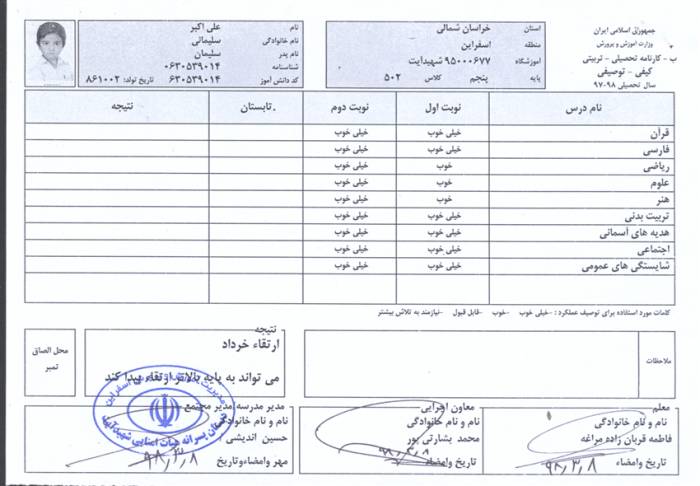 جمهوری اسلامی ایران
وزارت آموزش و پرورش
ب - کارنامه تحصیلی - تربیتی
کیفی - توصیفی
سال تحصیلی ۹۸-۹۷
استان خراسان شمالی
منطقه اسفراین
آموزشگاه ۹۵۰۰۰۶۷۷ شهیدایت
پایه پنجم کلاس ۵۰۲
نام علی اکبر
نام خانوادگی سلیمانی
نام پدر سلیمان
شناسنامه ۰۶۳۰۵۳۹۰۱۴
کد دانش آموز ۰۶۳۰۵۳۹۰۱۴ تاریخ تولد: ۸۶۱۰۰۲
نام درس نوبت اول نوبت دوم تابستان نتیجه
قرآن خیلی خوب خیلی خوب
فارسی خیلی خوب خیلی خوب
ریاضی خوب خیلی خوب
علوم خوب خیلی خوب
هنر خوب خیلی خوب
تربیت بدنی خیلی خوب خیلی خوب
هدیه های آسمانی خیلی خوب خیلی خوب
اجتماعی خیلی خوب خیلی خوب
شایستگی های عمومی خیلی خوب خیلی خوب
کلمات مورد استفاده برای توصیف عملکرد : -خیلی خوب -خوب -قابل قبول -نیازمند به تلاش بیشتر
ملاحظات
نتیجه
ارتقاء خرداد
می تواند به پایه بالاتر ارتقاء پیدا کند
محل الصاق
تمبر
معلم
نام و نام خانوادگی
فاطمه قربان زاده مراغه
تاریخ وامضاء ۹۸,۳,۸
معاون اجرایی
نام و نام خانوادگی
محمد بشارتی پور
تاریخ وامضاء ۹۸,۳,۸
مدیر مدرسه/مدیر مجتمع
نام و نام خانوادگی
حسین اندیشی
مهر وامضاءوتاریخ ۹۸,۳,۸